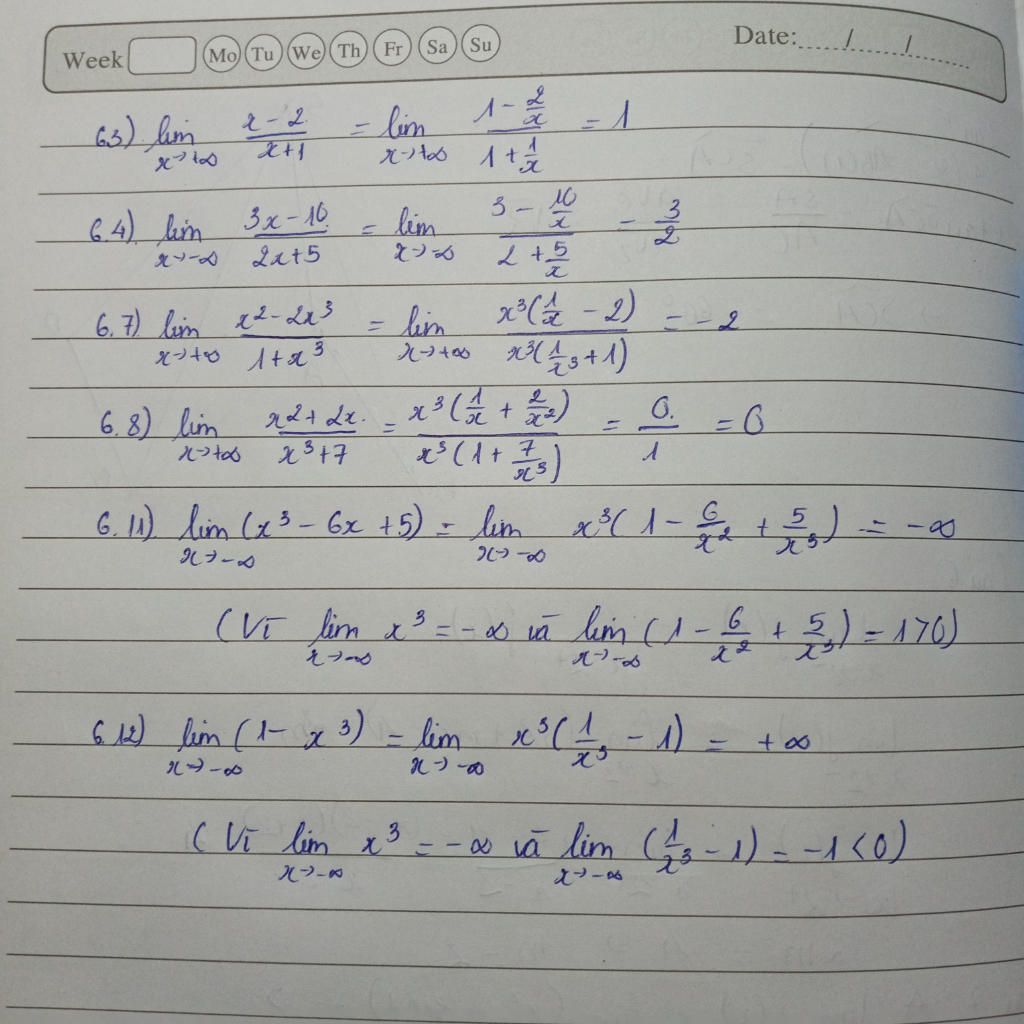 Week Mo Tu We Th Fr Sa Su Date: / /
6.3) lim x→+∞ (x - 2)/(x+1) = lim x→+∞ (1 - 2/x)/(1 + 1/x) = 1
6.4) lim x→-∞ (3x - 10)/(2x+5) = lim x→-∞ (3 - 10/x)/(2 + 5/x) = 3/2
6.7) lim x→+∞ (x² - 2x³)/(1 + x³) = lim x→+∞ x³(1/x - 2)/x³(1/x³ + 1) = -2
6.8) lim x→+∞ (x² + 2x)/(x³+7) = x³(1/x + 2/x²)/x³(1 + 7/x³) = 0/1 = 0
6.11) lim x→-∞ (x³ - 6x + 5) = lim x→-∞ x³(1 - 6/x² + 5/x³) = -∞
(Vì lim x→-∞ x³ = -∞ và lim x→-∞ (1 - 6/x² + 5/x³) = 1 > 0)
6.12) lim x→-∞ (1 - x³) = lim x→-∞ x³(1/x³ - 1) = +∞
(Vì lim x→-∞ x³ = -∞ và lim x→-∞ (1/x³ - 1) = -1 < 0)